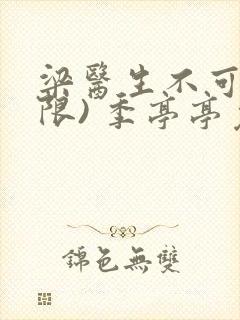 梁醫生不可
限) 季亭亭
錦色無雙